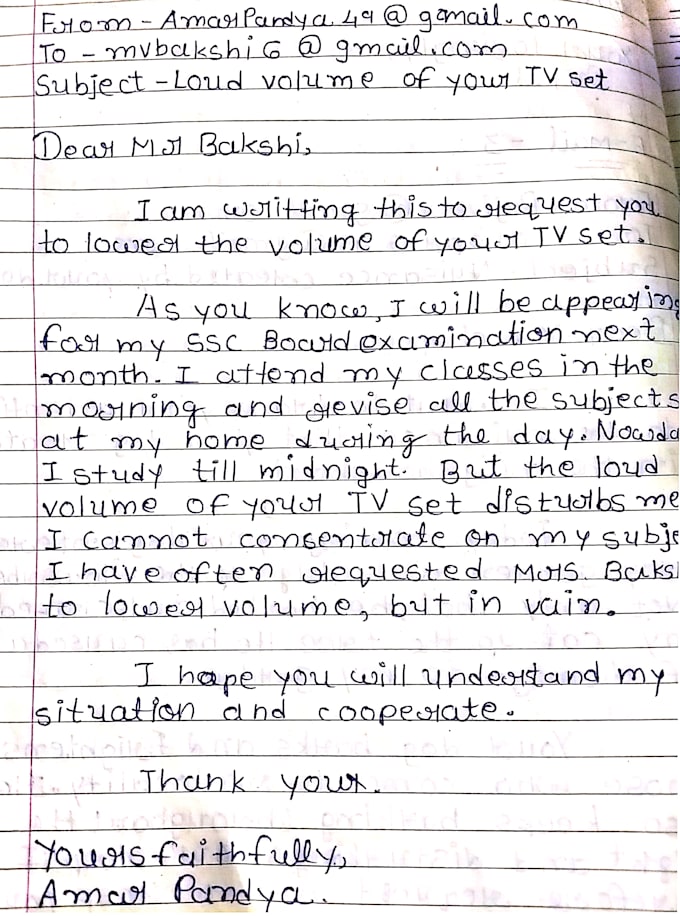 From - AmarPandya49@gamail.com
To - mvbakshi6@gmail.com
Subject - Loud volume of your TV set
Dear Mr Bakshi,
I am writting this to request you
to lower the volume of your TV set.
As you know, I will be appearing
for my SSC Board examination next
month. I attend my classes in the
morning and revise all the subjects
at my home during the day. Nowda
I study till midnight. But the loud
volume of your TV set disturbs me
I cannot consentrate on my subje
I have often requested Mrs. Baks
to lower volume, but in vain.
I hope you will understand my
situation and cooperate.
Thank your.
Yours faithfully,
Amar Pandya.